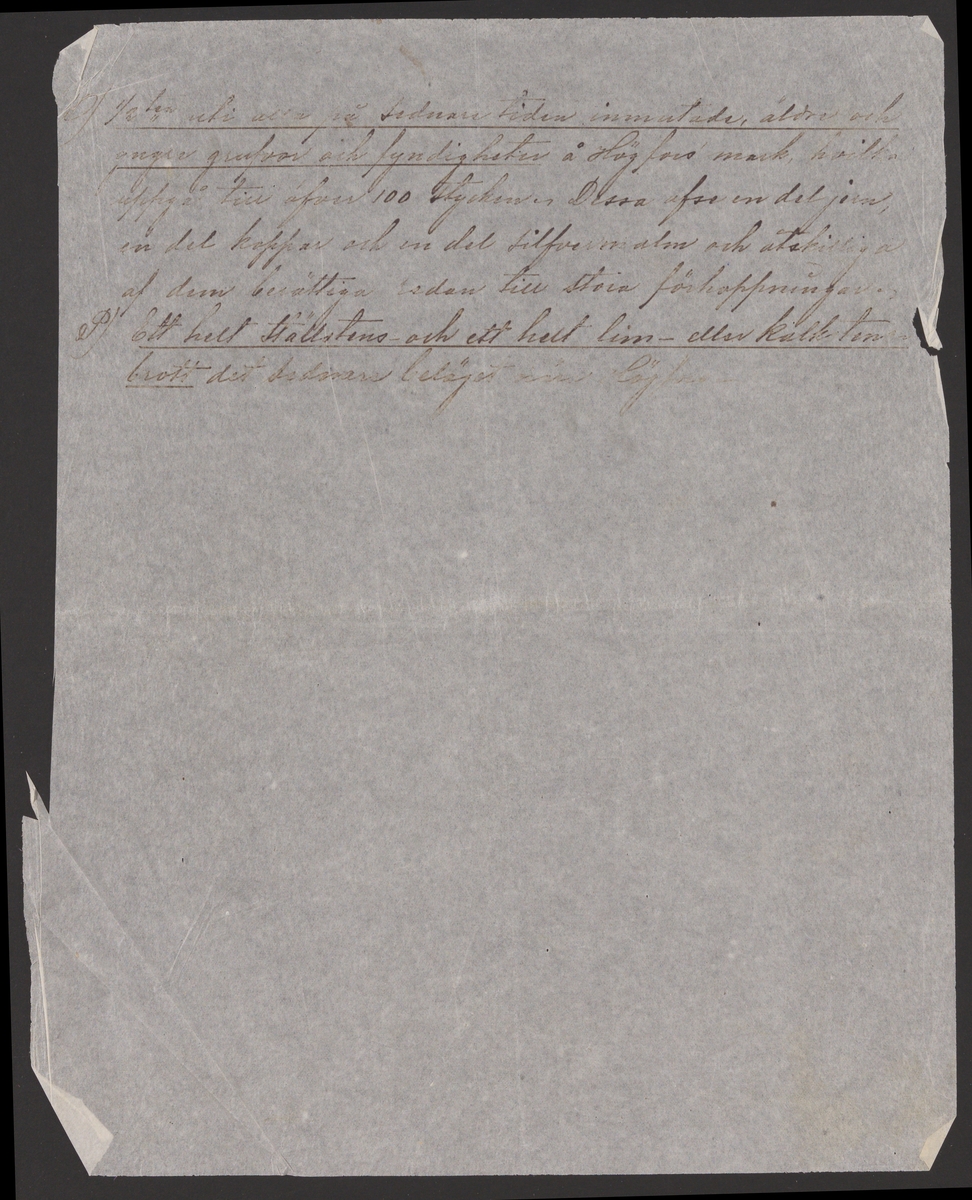 O) 1/2ten uti alla på sednare tiden inmutade, äldre och
yngre grufvor och fyndigheter å Högfors mark, hvilka
uppgå till öfver 100 stycken. Dessa afse en del jern,
en del koppar och en del silfvermalm och åtskilliga
af dem berättiga redan till stora förhoppningar.
P) Ett helt ställstens- och ett helt lim- eller kalkstens
brott det sednare beläget